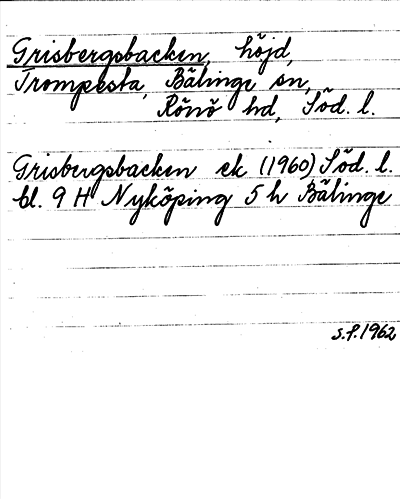 Grisbergsbacken, höjd,
Trompesta, Bälinge sn,
Rönö hd, Söd. l.
Grisbergsbacken ek (1960) Söd. l.
bl. 9 H Nyköping 5 h Bälinge
s.f. 1962